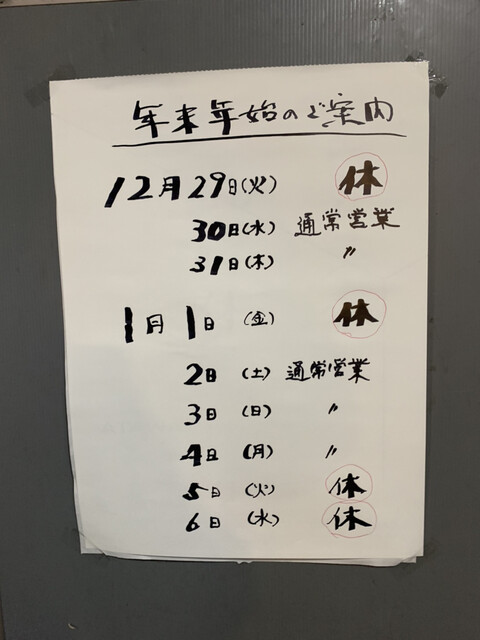 年末年始のご案内
12月29日(火) 休
30日(水) 通常営業
31日(木) 〃
1月1日(金) 休
2日(土) 通常営業
3日(日) 〃
4日(月) 〃
5日(火) 休
6日(水) 休